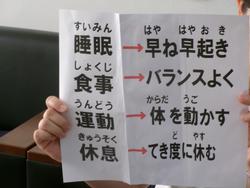 すいみん はや はやお
睡眠→早ね早起き
しょくじ
食事→バランスよく
うんどう からだ うご
運動→体を動かす
きゅうそく ど やす
休息→てき度に休む